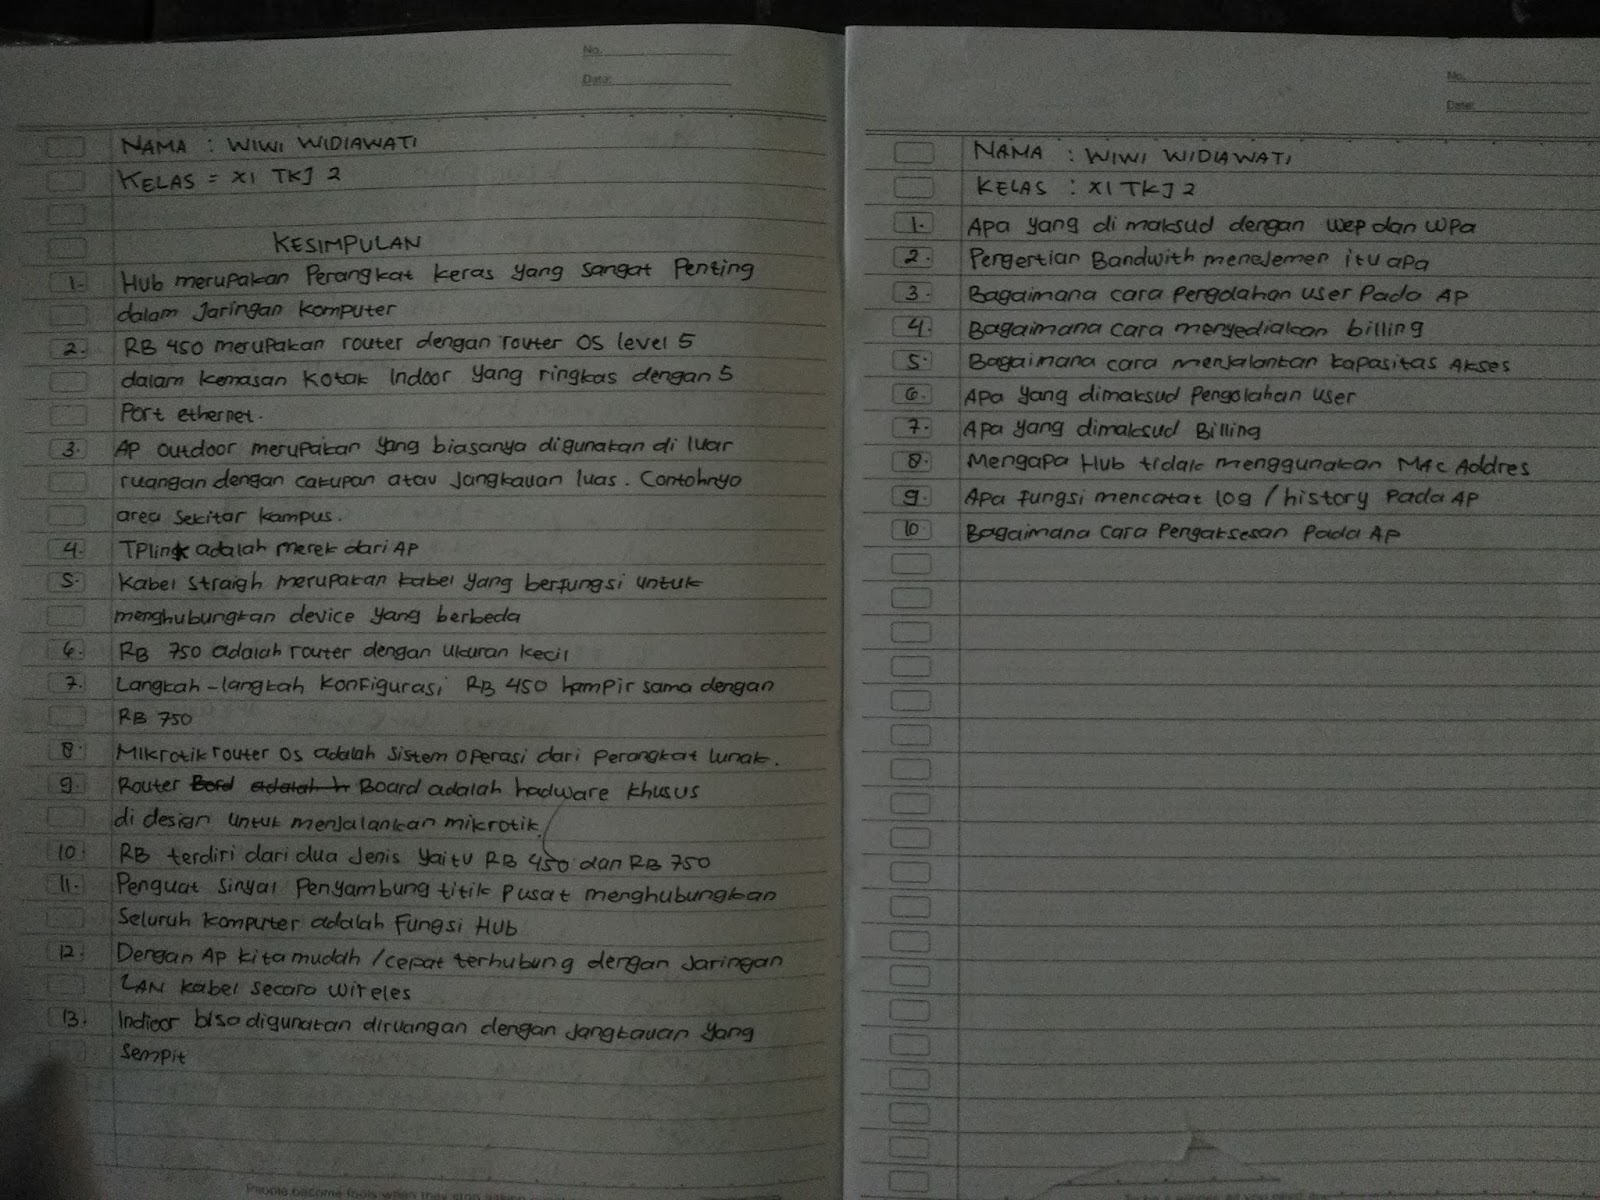 No.
Date:
NAMA : WIWI WIDIAWATI
KELAS = XI TKJ 2
KESIMPULAN
1. Hub merupakan Perangkat keras yang sangat Penting
dalam Jaringan Komputer
2. RB 450 merupakan router dengan router OS level 5
dalam kemasan Kotak Indoor yang ringkas dengan 5
Port ethernet.
3. AP outdoor merupakan yang biasanya digunakan di luar
ruangan dengan cakupan atau Jangkauan luas. Contohnya
area sekitar kampus.
4. TPlink adalah merek dari AP
5. Kabel Straigh merupakan kabel yang berfungsi untuk
menghubungkan device yang berbeda
6. RB 750 adalah router dengan ukuran kecil
7. Langkah-langkah Konfigurasi RB 450 hampir sama dengan
RB 750
8. Mikrotik router Os adalah Sistem Operasi dari perangkat lunak.
9. Router Bord adalah h Board adalah hadware khusus
di design untuk menjalankan mikrotik.
10. RB terdiri dari dua Jenis yaitu RB 450 dan RB 750
11. Penguat Sinyal Penyambung titik pusat menghubungkan
Seluruh komputer adalah Fungsi Hub
12. Dengan AP kita mudah /cepat terhubung dengan Jaringan
LAN kabel secara wireles
13. Indioor bisa digunakan diruangan dengan jangkauan yang
sempit
No.
Date:
NAMA : WIWI WIDIAWATI
KELAS : XI TKJ 2
1. Apa yang di maksud dengan wep dan WPa
2. Pengertian Bandwith menejemen itu apa
3. Bagaimana cara Pengolahan user Pada AP
4. Bagaimana cara menyediakan billing
5. Bagaimana cara menjalankan kapasitas Akses
6. Apa yang dimaksud Pengolahan user
7. Apa yang dimaksud Billing
8. Mengapa Hub tidak menggunakan MAC Addres
9. Apa fungsi mencatat log / history Pada AP
10 Bagaimana Cara Pengaksesan Pada AP